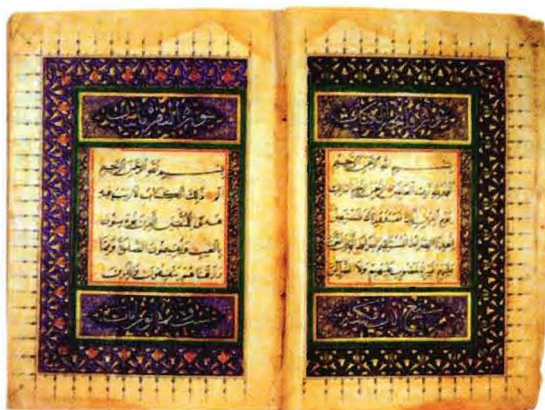 سورة فاتحة الكتاب
بسم الله الرحمن الرحيم
الحمد لله رب العالمين الرحمن الرحيم مالك
يوم الدين اياك نعبد واياك نستعين
اهدنا الصراط المستقيم صراط الذين انعمت
عليهم غير المغضوب عليهم ولا الضالين
سبع آيات مكية
سورة البقرة
بسم الله الرحمن الرحيم
الم ذلك الكتاب لا ريب فيه
هدى للمتقين الذين يؤمنون
بالغيب ويقيمون الصلوة ومما
رزقناهم ينفقون والذين